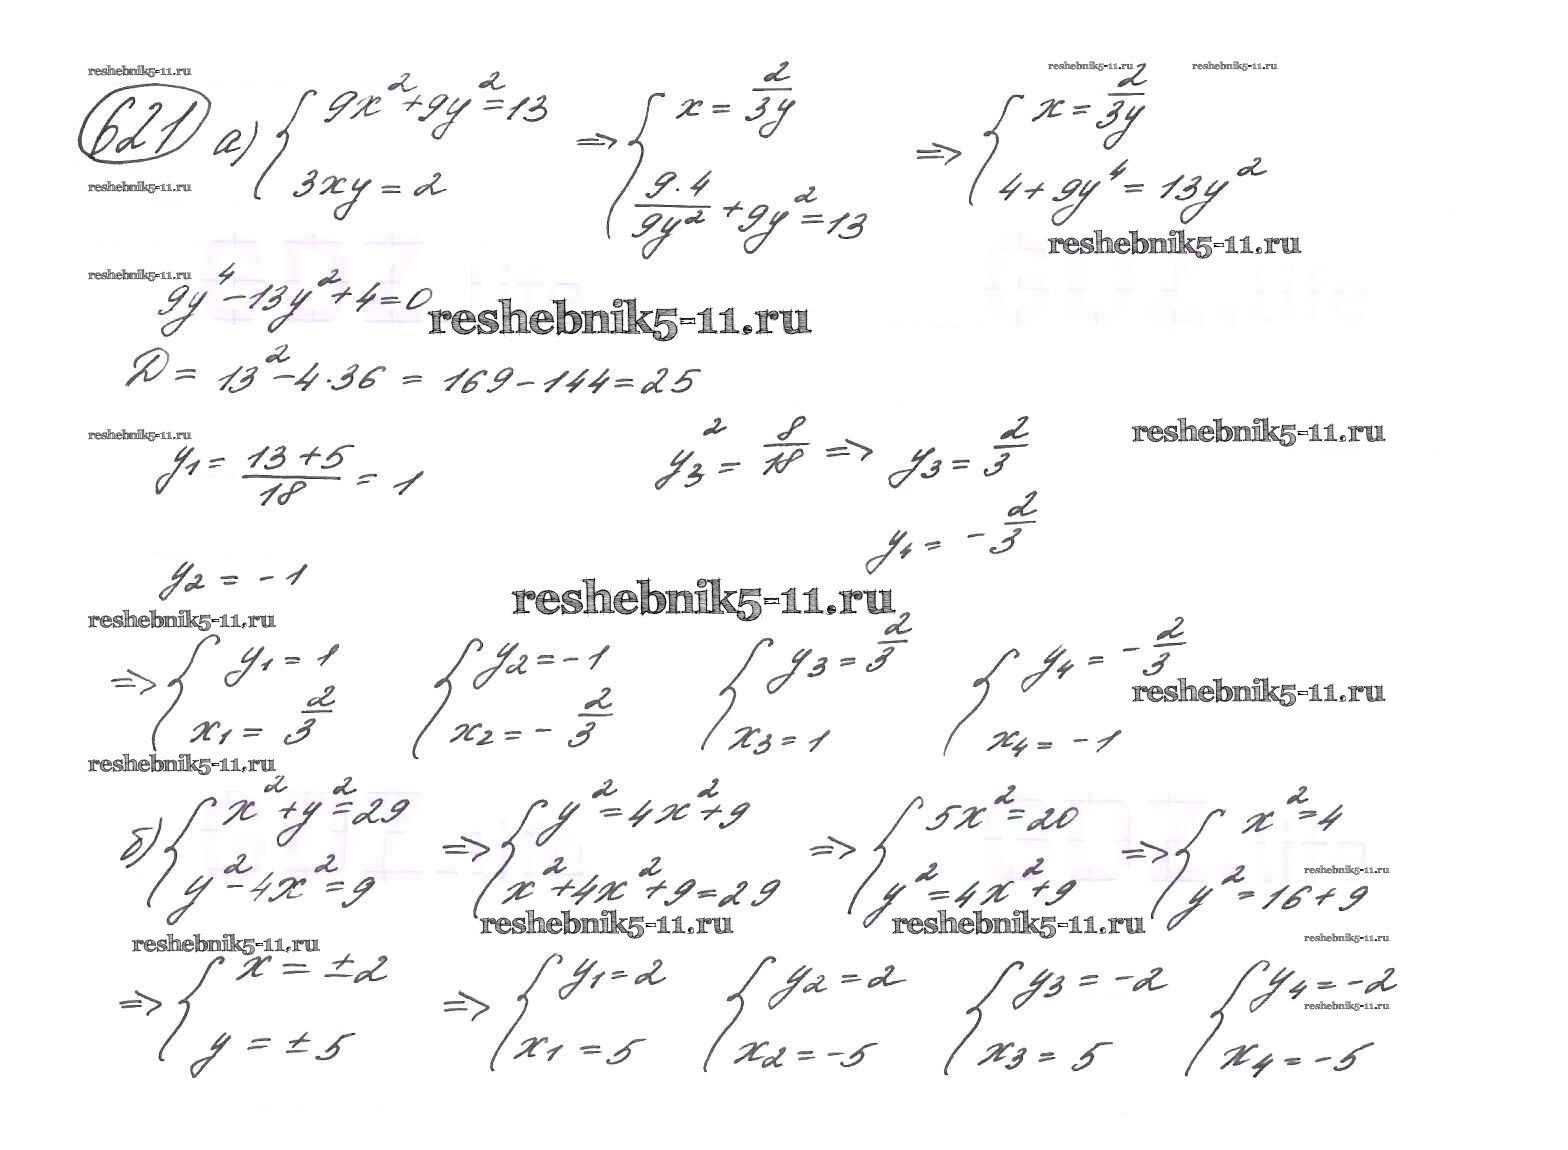 reshebnik5-11.ru reshebnik5-11.ru reshebnik5-11.ru
621 а) { 9x² + 9y² = 13 ; 3xy = 2 => { x = 2/3y ; 9·4/9y² + 9y² = 13 => { x = 2/3y ; 4 + 9y⁴ = 13y²
reshebnik5-11.ru
reshebnik5-11.ru
reshebnik5-11.ru
9y⁴ - 13y² + 4 = 0
reshebnik5-11.ru
D = 13² - 4·36 = 169 - 144 = 25
reshebnik5-11.ru reshebnik5-11.ru
y₁ = 13+5/18 = 1 y₃² = 8/18 => y₃ = 2/3
y₄ = - 2/3
y₂ = -1
reshebnik5-11.ru
reshebnik5-11.ru
=> { y₁ = 1 ; x₁ = 2/3 { y₂ = -1 ; x₂ = - 2/3 { y₃ = 2/3 ; x₃ = 1 { y₄ = - 2/3 ; x₄ = -1
reshebnik5-11.ru
reshebnik5-11.ru
б) { x² + y² = 29 ; y² - 4x² = 9 => { y² = 4x² + 9 ; x² + 4x² + 9 = 29 => { 5x² = 20 ; y² = 4x² + 9 => { x² = 4 ; y² = 16 + 9
reshebnik5-11.ru
reshebnik5-11.ru reshebnik5-11.ru
reshebnik5-11.ru reshebnik5-11.ru
=> { x = ±2 ; y = ±5 => { y₁ = 2 ; x₁ = 5 { y₂ = 2 ; x₂ = -5 { y₃ = -2 ; x₃ = 5 { y₄ = -2 ; x₄ = -5
reshebnik5-11.ru